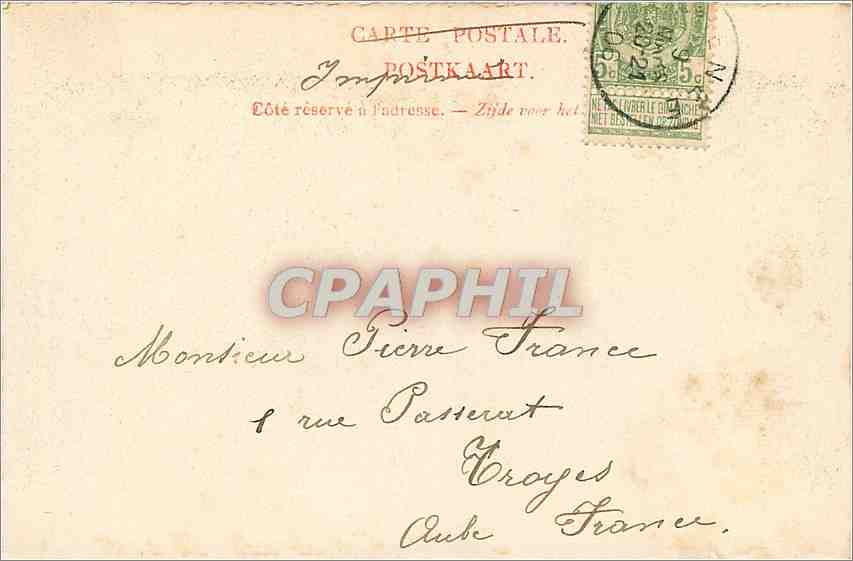 CARTE POSTALE.
POSTKAART.
Imprimé
Côté réservé à l'adresse. — Zijde voor het
5c 5c
NE PAS LIVRER LE DIMANCHE
NIET BESTELLEN OP ZONDAG
9
MARS
20-21
06
CPAPHIL
Monsieur Pierre France
1 rue Passerat
Troyes
Aube France.